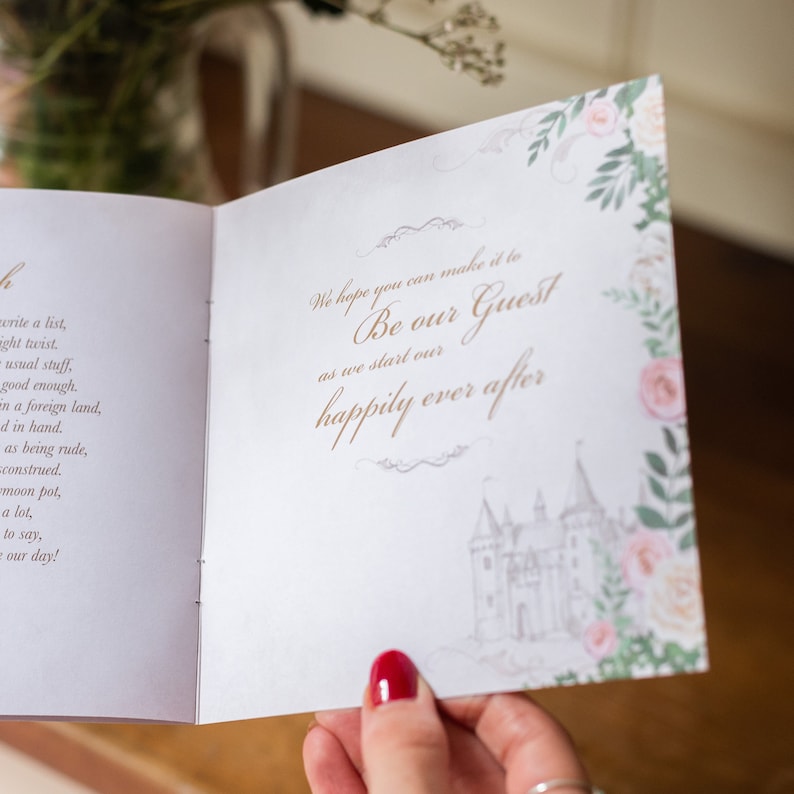 h
write a list,
ght twist.
usual stuff,
good enough.
in a foreign land,
d in hand.
as being rude,
sconstrued.
ymoon pot,
a lot,
to say,
e our day!
We hope you can make it to
Be our Guest
as we start our
happily ever after